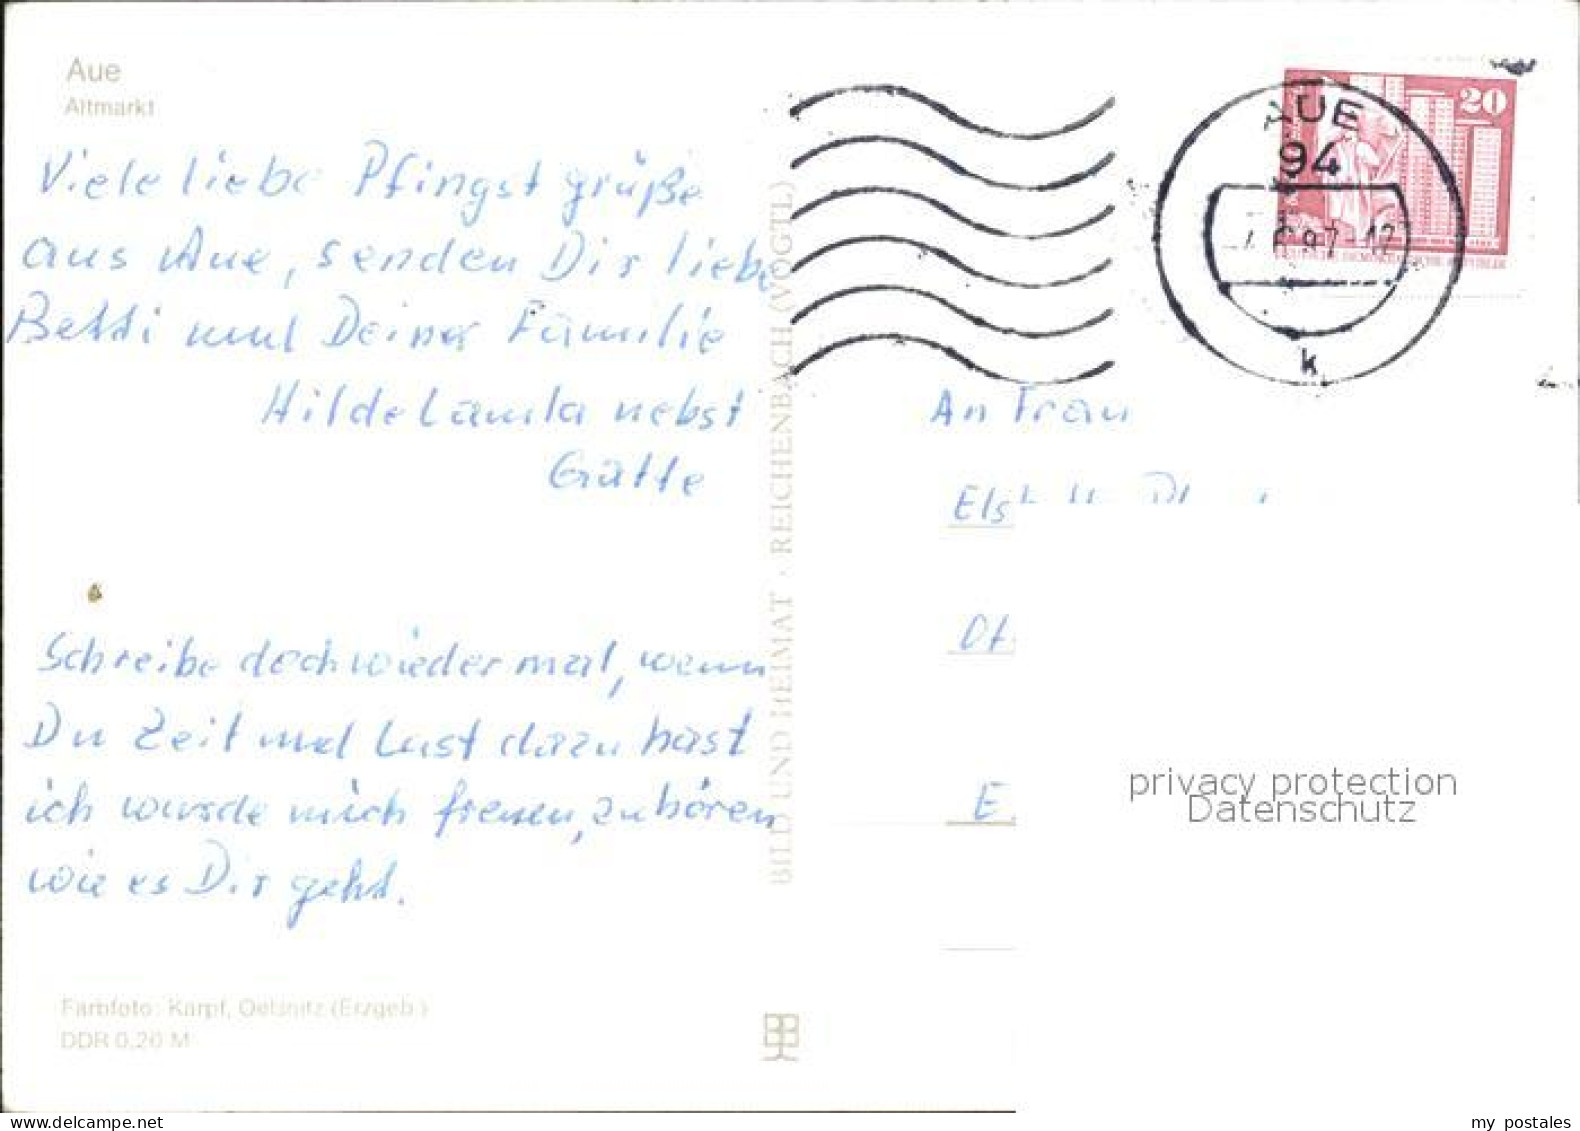 Aue
Altmarkt
Viele liebe Pfingst grüße
aus Aue, senden Dir liebe
Betti und Deiner Familie
Hilde Lamla nebst
Gatte
Schreibe doch wieder mal, wenn
Du Zeit und Lust dazu hast
ich würde mich freuen, zu hören
wie es Dir geht.
Farbfoto: Karpf, Oelsnitz (Erzgeb.)
DDR 0,20 M
BILD UND HEIMAT · REICHENBACH (VOGTL)
20
AUE
94
k
An Frau
Els
E.
privacy protection
Datenschutz
my postales